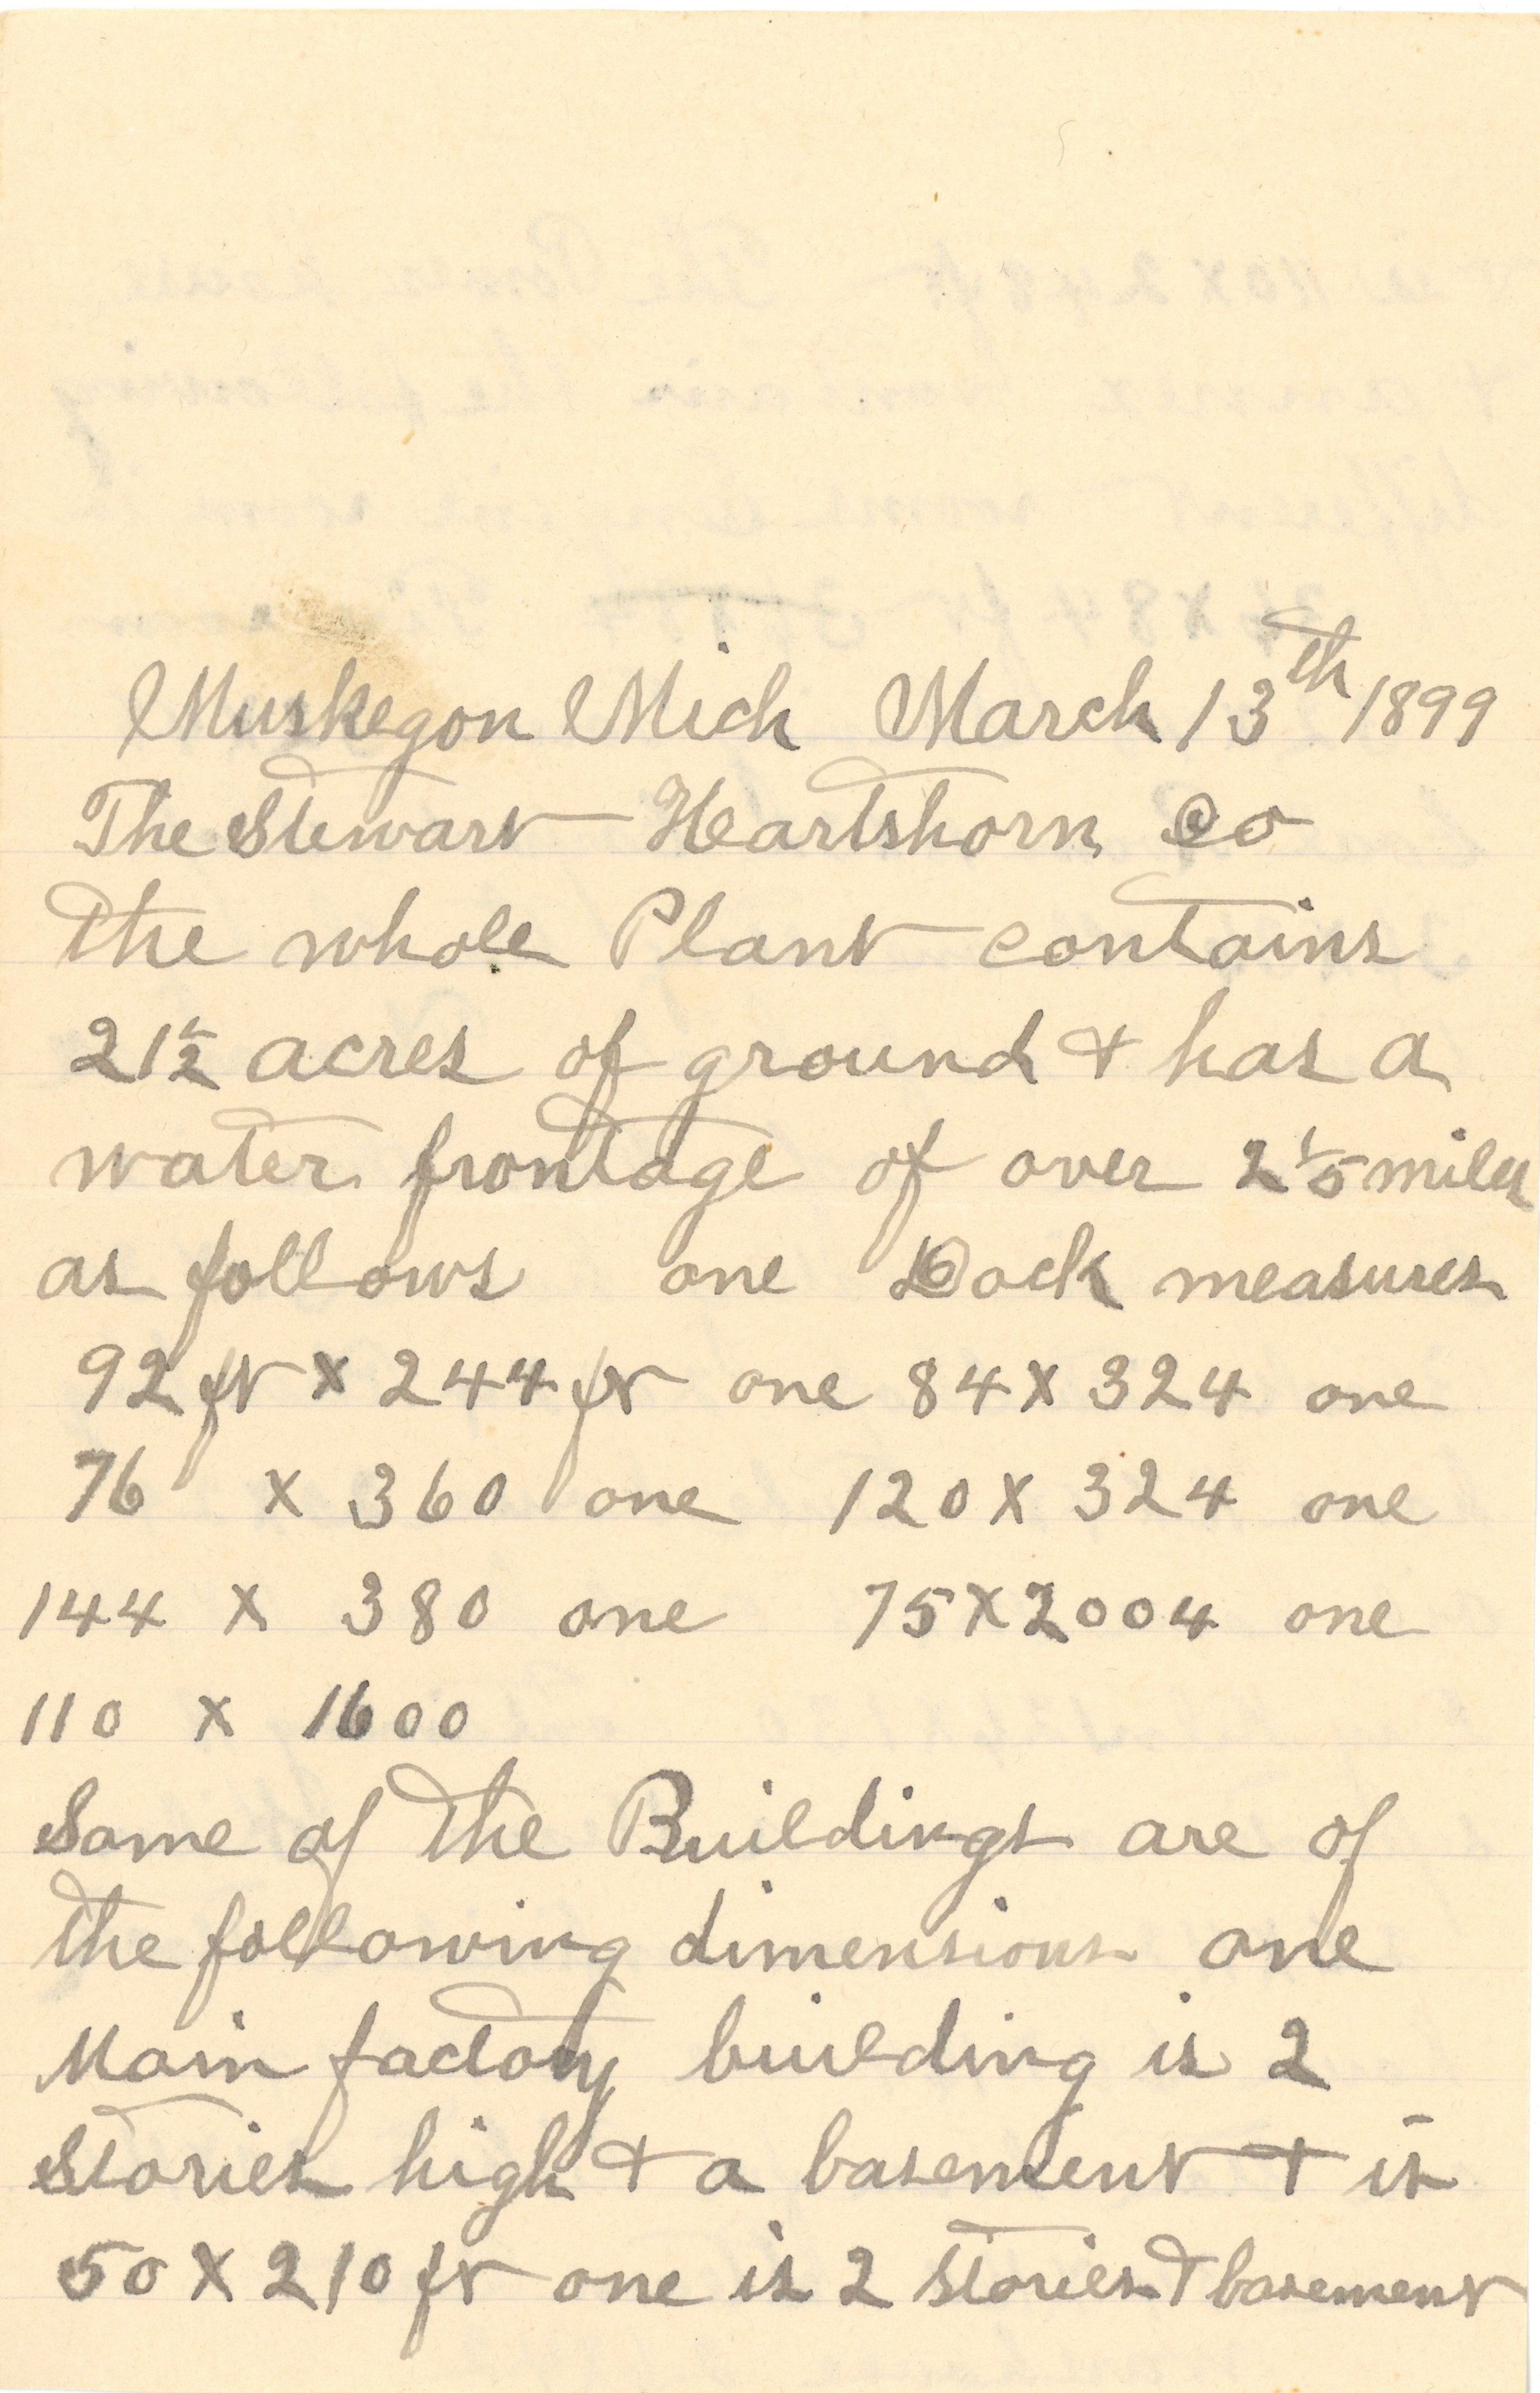 Muskegon Mich March 13th 1899
The Stewart Heartshorn Co
the whole Plant contains
21½ acres of ground & has a
water frontage of over 2⅕ miles
as follows one Dock measures
92 ft x 244 ft one 84 x 324 one
76 x 360 one 120 x 324 one
144 x 380 one 75 x 2004 one
110 x 1600
Some of the Buildings are of
the following dimensions one
Main factory building is 2
stories high & a basement & is
50 x 210 ft one is 2 stories & basement